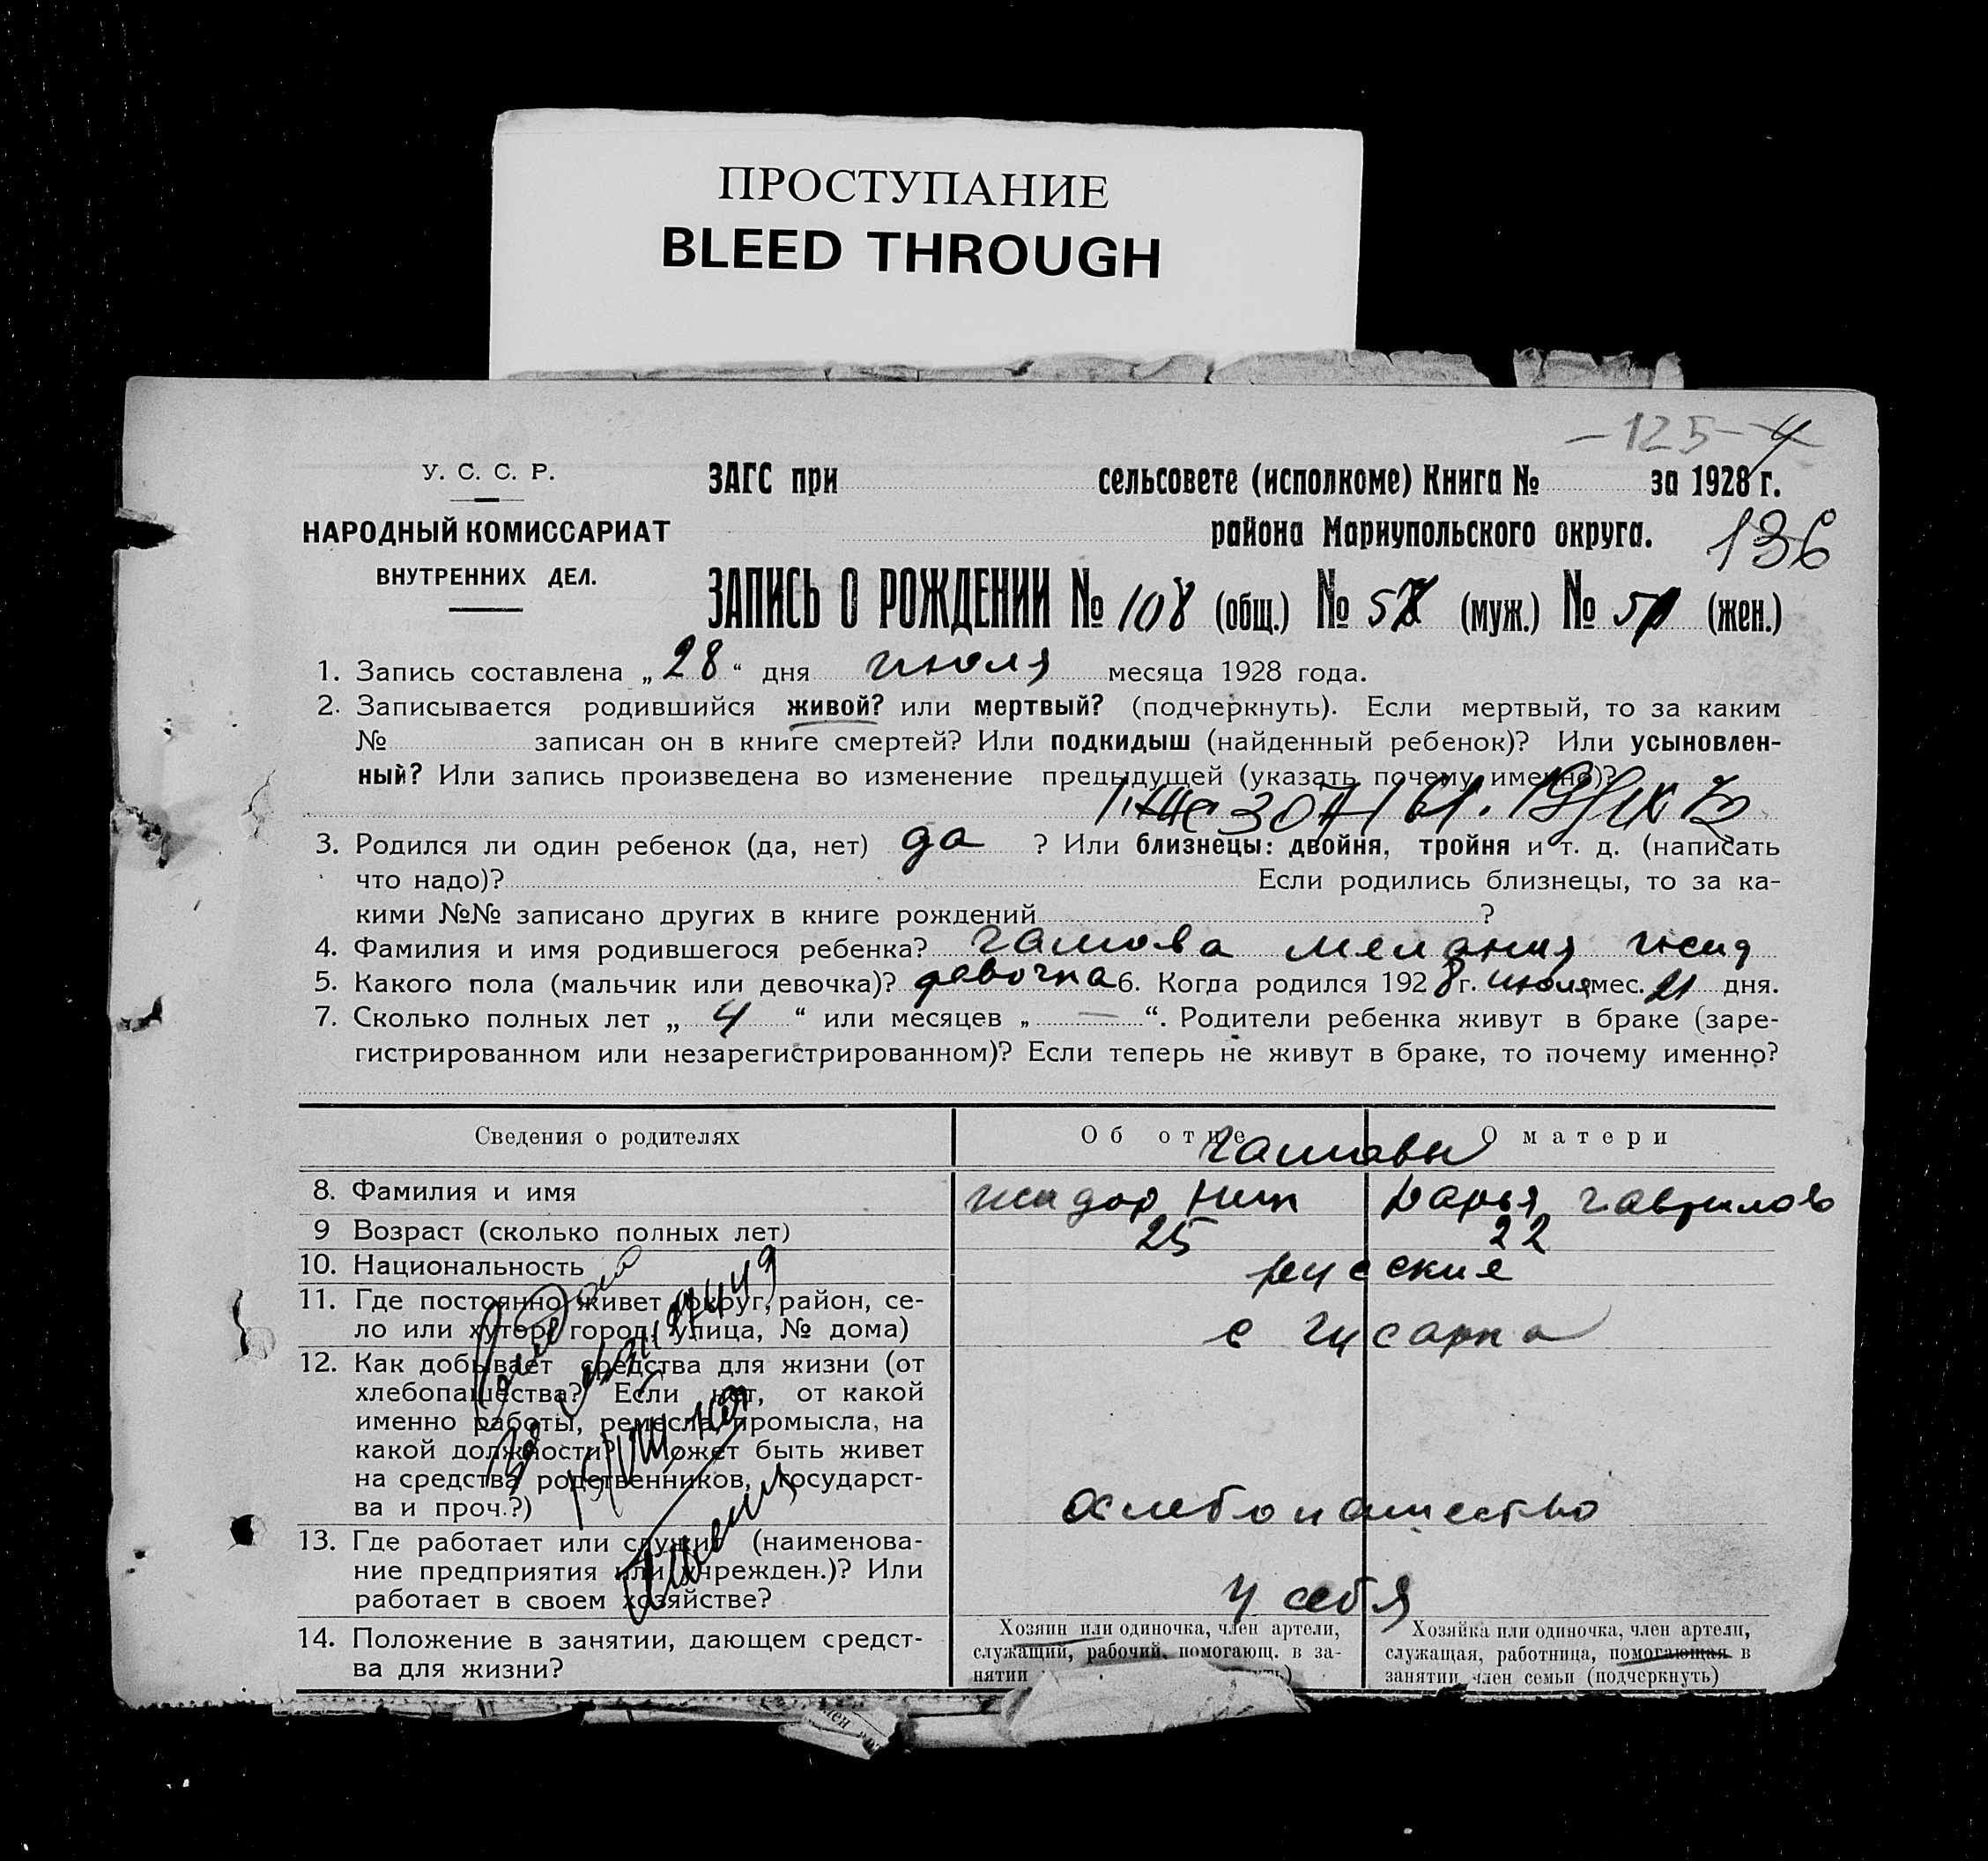 ПРОСТУПАНИЕ
BLEED THROUGH
- 125 -
У. С. С. Р.
ЗАГС при сельсовете (исполкоме) Книга № за 1928 г.
НАРОДНЫЙ КОМИССАРИАТ
района Мариупольского округа.
136
ВНУТРЕННИХ ДЕЛ.
ЗАПИСЬ О РОЖДЕНИИ № 108 (общ.) № (муж.) № (жен.)
1. Запись составлена „ 28 “ дня июля месяца 1928 года.
2. Записывается родившийся живой? или мертвый? (подчеркнуть). Если мертвый, то за каким
№ записан он в книге смертей? Или подкидыш (найденный ребенок)? Или усыновлен-
ный? Или запись произведена во изменение предыдущей (указать почему именно)?
3. Родился ли один ребенок (да, нет) да ? Или близнецы: двойня, тройня и т. д. (написать
что надо)? Если родились близнецы, то за ка-
кими №№ записано других в книге рождений ?
4. Фамилия и имя родившегося ребенка? Гашова Мелания
5. Какого пола (мальчик или девочка)? девочка 6. Когда родился 1928 г. июля мес. 21 дня.
7. Сколько полных лет „ 4 “ или месяцев „ — “. Родители ребенка живут в браке (заре-
гистрированном или незарегистрированном)? Если теперь не живут в браке, то почему именно?
Сведения о родителях Об отце О матери
Гашовы
8. Фамилия и имя Дарья Гаврилов
9 Возраст (сколько полных лет) 25 22
10. Национальность русские
11. Где постоянно живет (округ, район, се-
ло или хутор, город, улица, № дома) с Гусарка
12. Как добывает средства для жизни (от
хлебопашества? Если нет, от какой
именно работы, ремесла, промысла, на
какой должности? Может быть живет
на средства родственников, государст-
ва и проч.?) хлебопашество
13. Где работает или служит (наименова-
ние предприятия или учрежден.)? Или
работает в своем хозяйстве? у себя
14. Положение в занятии, дающем средст-
ва для жизни?
Хозяин или одиночка, член артели,
служащий, рабочий, помогающ. в за-
нятии
Хозяйка или одиночка, член артели,
служащая, работница, помогающая в
занятии член семьи (подчеркнуть)